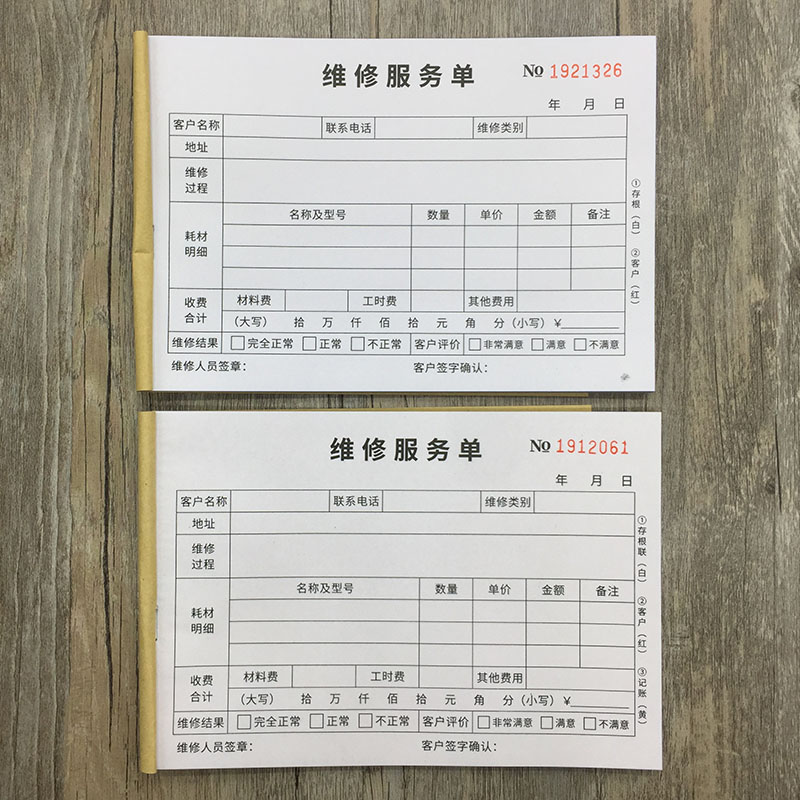 维修服务单 No 1921326
年 月 日
客户名称 联系电话 维修类别
地址
维修过程
耗材明细 名称及型号 数量 单价 金额 备注
收费合计 材料费 工时费 其他费用
(大写) 拾 万 仟 佰 拾 元 角 分 (小写) ¥
维修结果 完全正常 正常 不正常 客户评价 非常满意 满意 不满意
维修人员签章: 客户签字确认:
①存根(白) ②客户(红)
维修服务单 No 1912061
年 月 日
客户名称 联系电话 维修类别
地址
维修过程
耗材明细 名称及型号 数量 单价 金额 备注
收费合计 材料费 工时费 其他费用
(大写) 拾 万 仟 佰 拾 元 角 分 (小写) ¥
维修结果 完全正常 正常 不正常 客户评价 非常满意 满意 不满意
维修人员签章: 客户签字确认:
①存根联(白) ②客户(红) ③记账(黄)